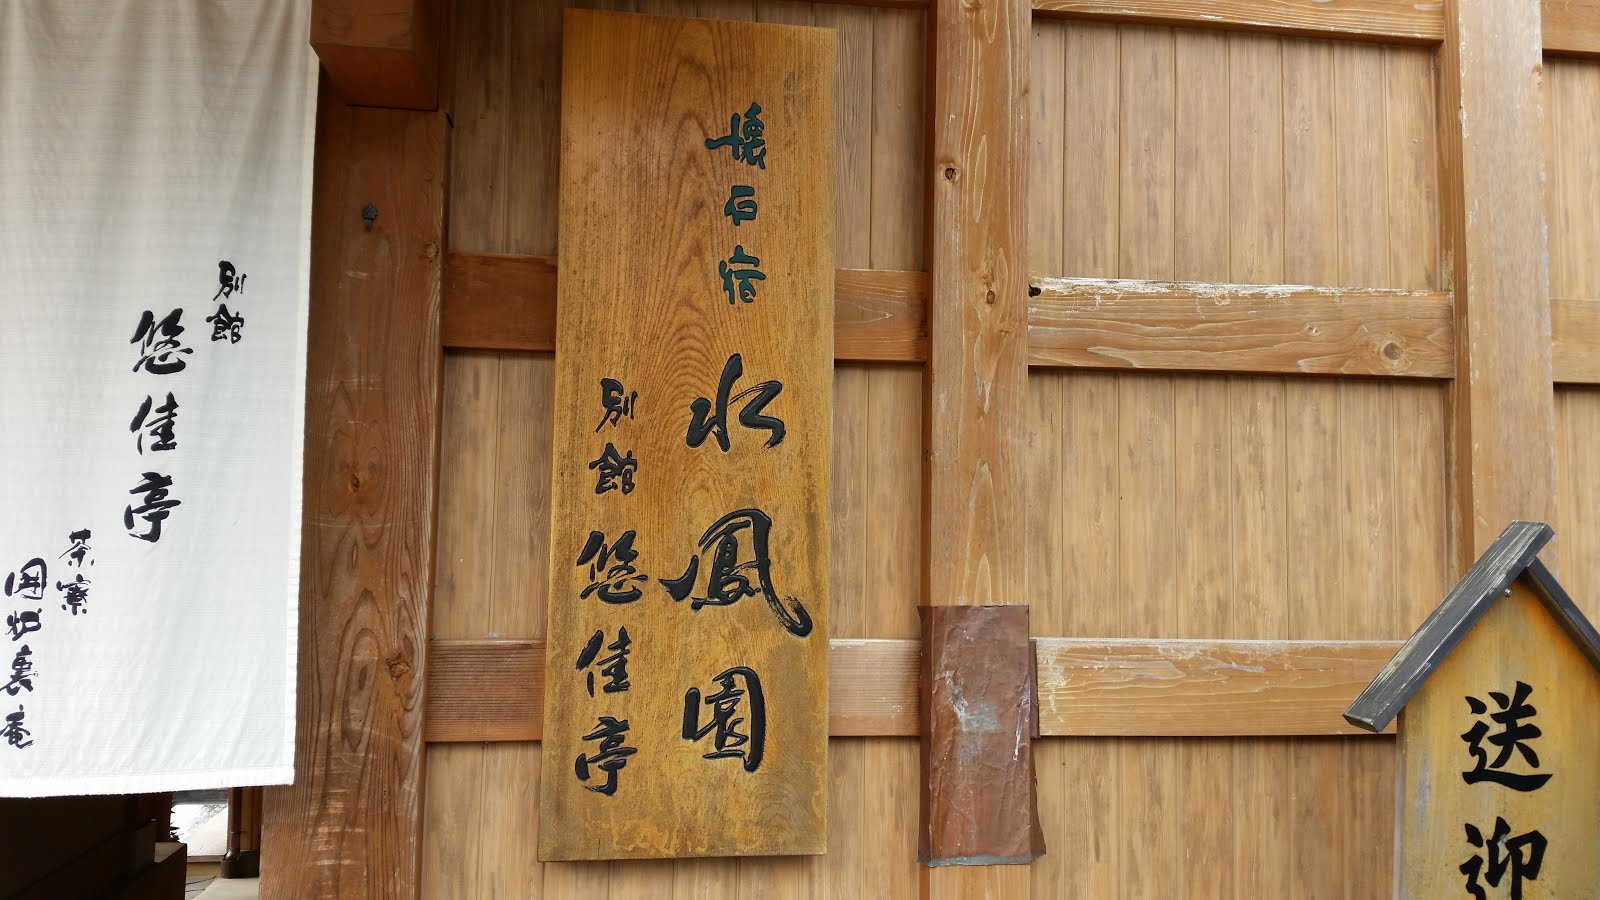 懐石宿
水鳳園
別館 悠佳亭
別館
悠佳亭
茶寮
囲炉裏庵
送迎